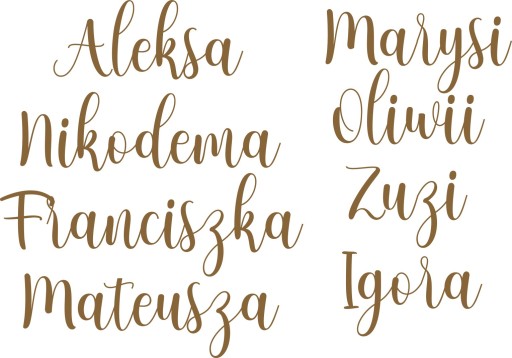 Aleksa
Nikodema
Franciszka
Mateusza
Marysi
Oliwii
Zuzi
Igora